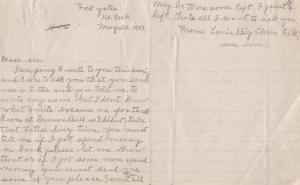 Fort Yates
No. Dak.
May 22, 19
Dear sir:
I am going to write to you this evening
and I was to ask you that you send
me a letter and you told me to
write my name but I don't know
what I write excuse me for that
I was at Cannon Ball so I didn't take
that letter long time, you must
tell me if I got spend money
in bank please let me know
that or if I got some more spend
money you must send me
some of you please I want all
May be there some left, I guess
left thats all I want to ask you
From, Louie Big Horn Elk